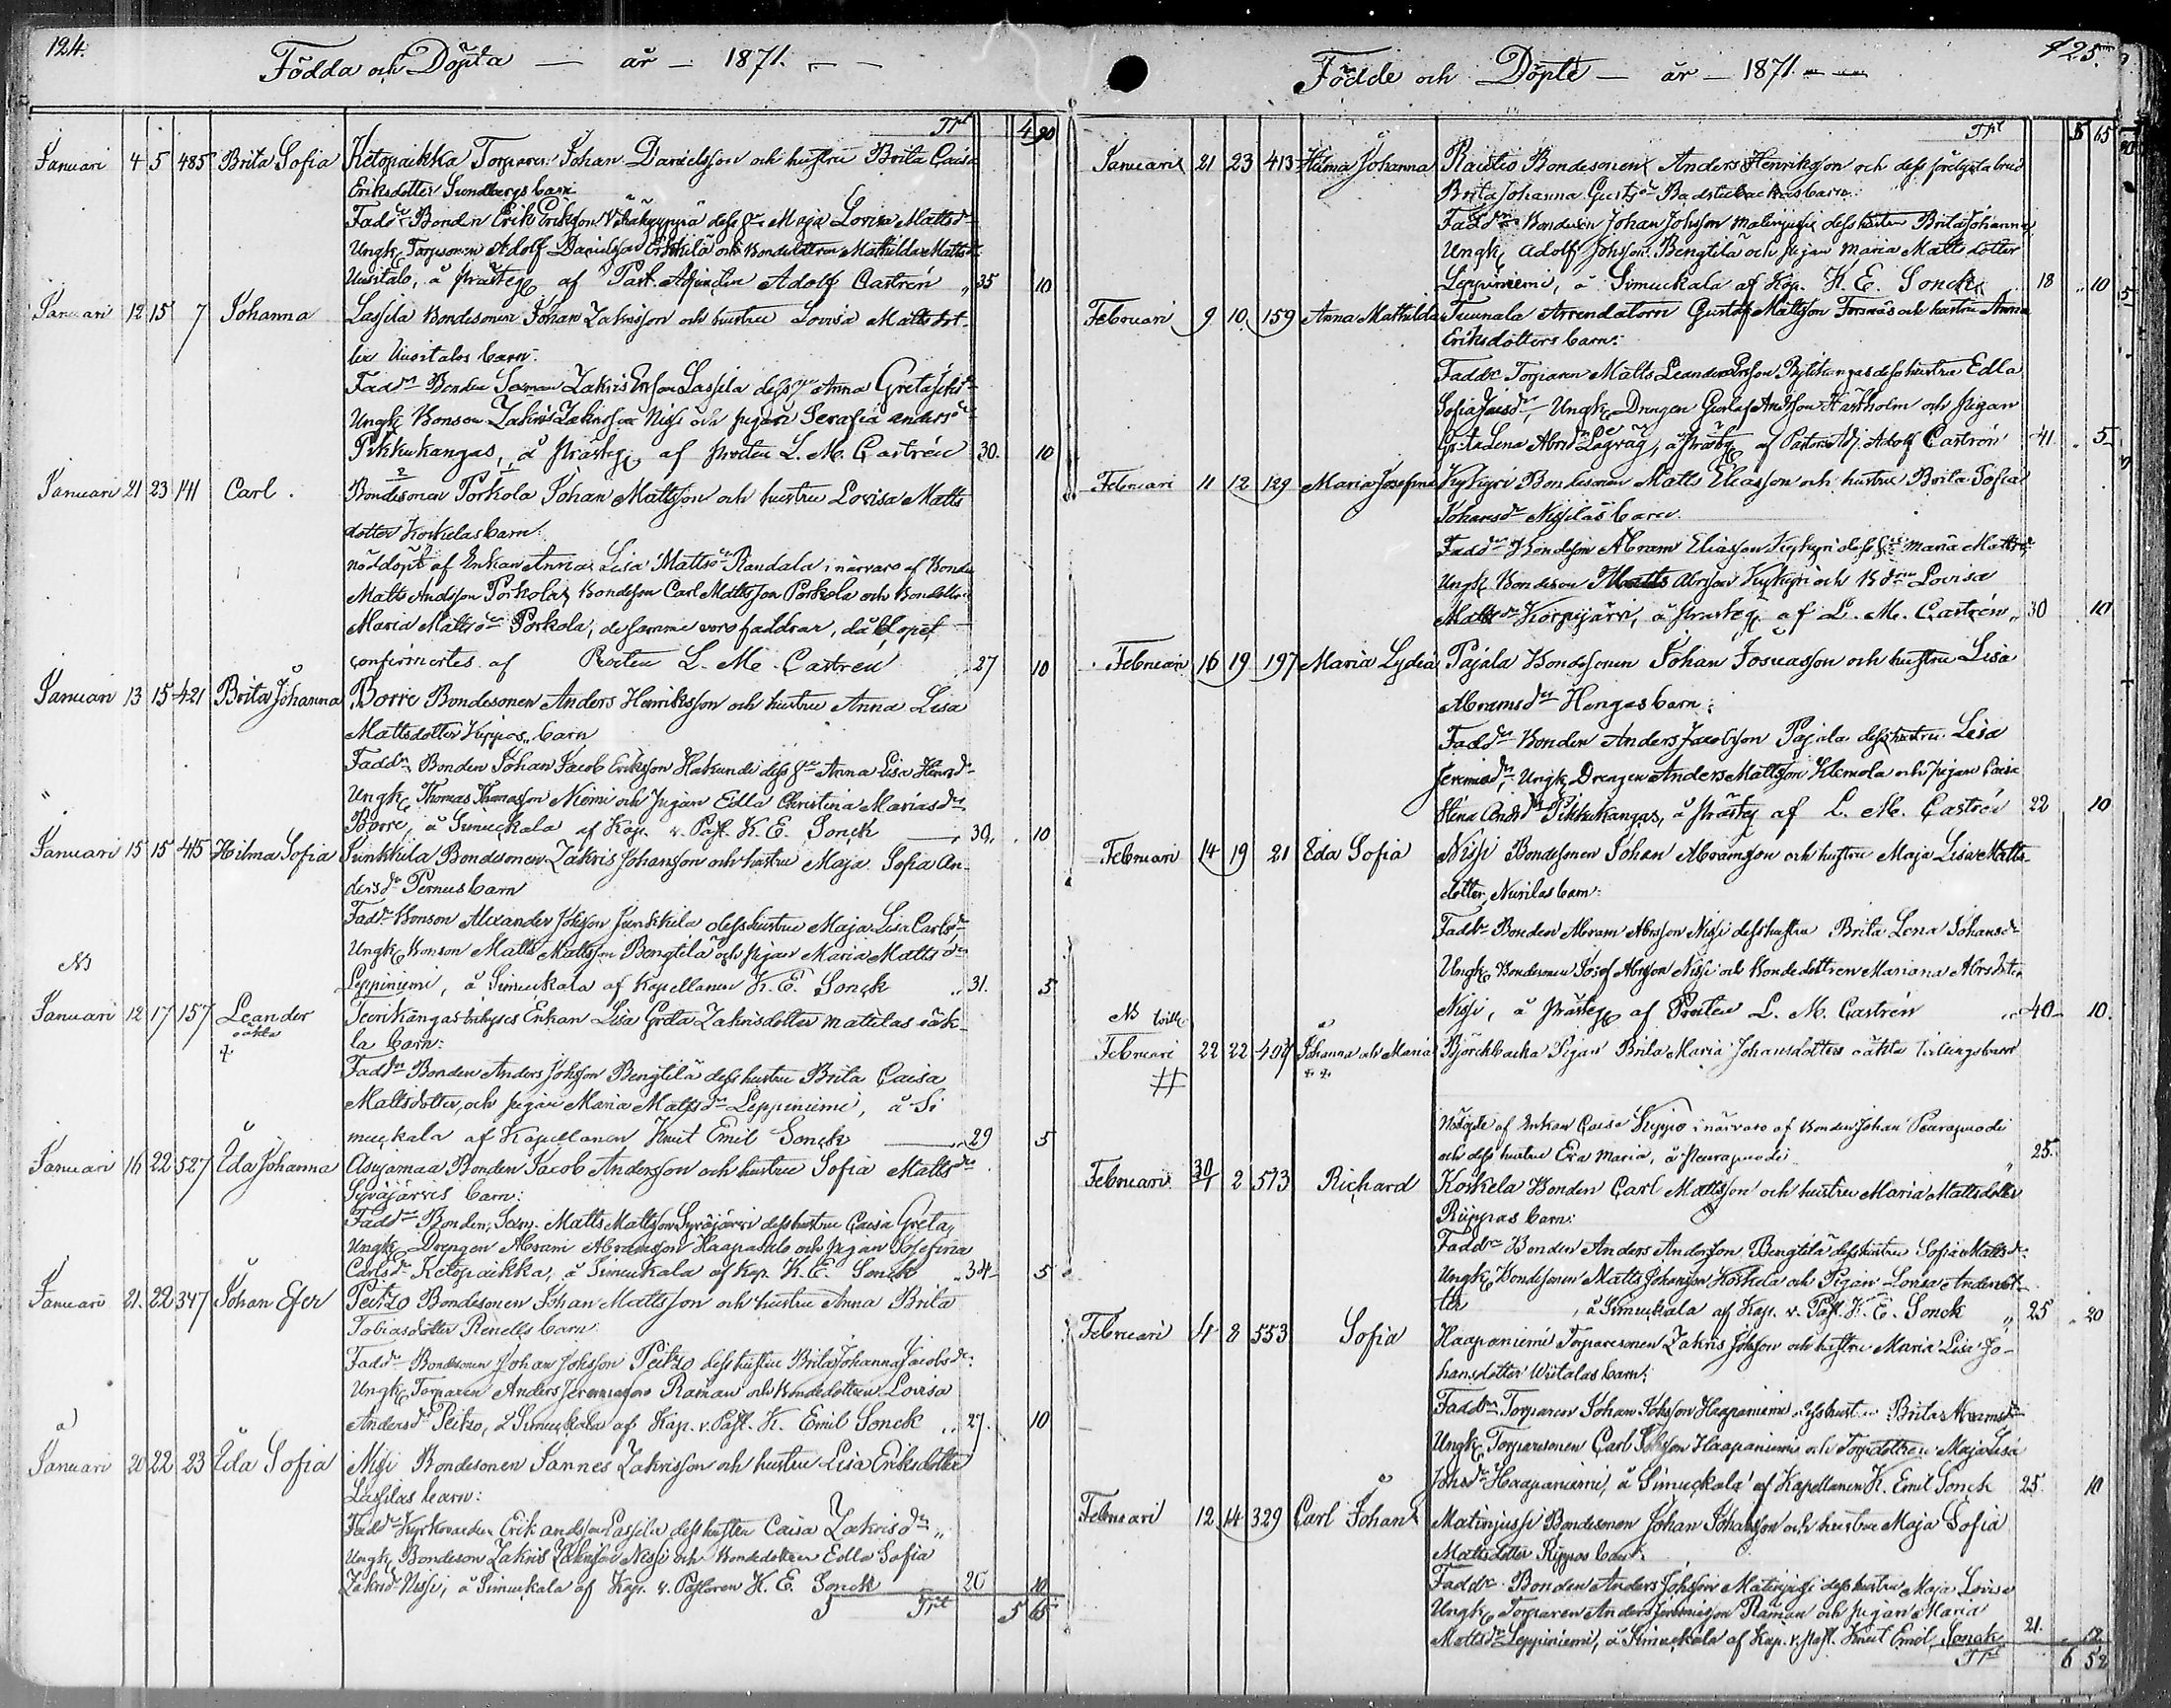 124.
Födda och Döpta — år — 1871. — —
Trpt 4 90
Januari 4 5 485 Brita Sofia Ketopaikka Torparen Johan Danielsson och hustru Brita Caisa
Eriksdotter Sundbergs barn
Faddr Bonden Erik Eriksson dess hu Maja Lovisa Mattsdr
Ungk. Torpsonen Adolf Danielsson Erkkilä och Bondedottren Mathilda Mattsdr
Uusitalo, å Prästeg af Past. Adjuncten Adolf Castrén „ 35 10
Januari 12 15 7 Johanna Lassila Bondesonen Johan Zakrisson och hustru Lovisa Mattsdot-
ter Uusitalos barn:
Faddr Bonden Zakris Lassila dess hu Anna Greta
Ungk. Bonson Zakris Zakrisson Nissi och pigan Serafia Andersdr
Pikkukangas, å Prästeg af Prosten L. M. Castrén 30. 10
Januari 21 23 141 Carl. Bondesonen Porkola Johan Mattsson och hustru Lovisa Matts
dotter Korkelas barn:
nöddöpt af Enkan Anna Lisa Mattsdr Randala i närvaro af Bonden
Matts Andsson Porkola, Bondeson Carl Mattsson Porkola och Bondedottr
Maria Mattsdr Porkola, desamme voro faddrar, dåblopet
confirmertes af Prosten L. M. Castrén 27 10
Januari 13 15 421 Brita Johanna Borre Bondesonen Anders Henriksson och hustru Anna Lisa
Mattsdotter Kippos barn
Faddr Bonden Johan Jacob Eriksson Hakundi dess hu Anna Lisa Henrdr
Ungk. Thomas Thomasson Niemi och Pigan Edla Christina Mariasdr
Borre, å Simuckala af Kap. v. Past. K. E. Sonck — 30, 10
Januari 15 15 415 Hilma Sofia Junkkila Bondesonen Zakris Johansson och hustru Maja Sofia An-
dersdr Pernus barn
Faddr Bonson Alexander Johsson Junkkila dess hustru Maja Lisa Carlsdr
Ungk. Bonson Matts Mattsson Bengtilä och pigan Maria Mattsdr
Leppiniemi, å Simuckala af Kapellanen K. E. Sonck „ 31. 5
NB
Januari 12 17 157 Leander Teerikangas Enkan Lisa Greta Zakrisdotter Mattilas oäk-
oäkta
ta barn:
Faddr Bonden Anders Johsson Bengtilä dess hustru Brita Caisa
Mattsdotter, och pigan Maria Mattsdr Leppiniemi, å Si
muckala af Kapellanen Knut Emil Sonck — 29 5
Januari 16 22 527 Eda Johanna Asujamaa Bonden Jacob Andersson och hustru Sofia Mattsdr
Syväjärvis barn:
Faddr Bonden, Matts Mattsson Syväjärvi dess hustru Caisa Greta,
Ungk. Drengen Abram Abramsson Haapasalo och pigan Josefina
Carlsdr Ketopaikka, å Simuckala af Kap. K. E. Sonck „ 34 5
Januari 21. 22 347 Johan Efer Peitzo Bondesonen Johan Mattsson och hustru Anna Brita
Tobiasdotter Renells barn
Faddr Bondesonen Johan Johsson Peitzo dess hustru Brita Johanna Jacobsdr:
Ungk. Torparen Anders Jeremiasson Raman och Bondedottren Lovisa
Andersdr Peitzo, å Simuckala af Kap. v. Past. K. Emil Sonck „ 27. 10
Januari 20 22 23 Eda Sofia Nissi Bondesonen Jannes Zakrisson och hustru Lisa Eriksdotter
Lassilas barn:
Faddr Kyrkvärden Erik Andsson Lassila dess hustru Caisa Zakrisdr „
Ungk. Bondeson Zakris Zakrisson Nissi och Bondedottren Edla Sofia
Zakrdr Nissi, å Simuckala af Kap. v. Pastoren K. E. Sonck 20 10
Trpt 5 65
125.
Födde och Döpte — år — 1871. — —
Trpt 5 65
Januari 21 23 413 Hilma Johanna Rautio Bondesonen Anders Henriksson och dess förlofvda brud
Brita Johanna Gustsdr Badstubackas barn:
Faddr Bonden Johan Johsson Matinjussi dess hustru Brita Johanna
Ungk. Adolf Johsson Bengtilä och pigan Maria Matts dotter
Leppiniemi, å Simuckala af Kap. K. E. Sonck 18 „ 10
Februari 9 10. 159 Anna Mathilda Tuunala Arrendatorn Gustaf Mattsson Forsnäs och hustru Anna
Eriksdotters barn:
Faddr Torparen Matts Leander dess hustru Edla
Sofia, Ungk. Drengen Gustaf Andsson Härkholm och pigan
Greta Lena Abrdr Lagväg, å Prästeg af Pastors Adj. Adolf Castrén 41. 5
Februari 11 12 129 Maria Josefina Kykyri Bondesonen Matts Eliasson och hustru Brita Sofia
Johansdr Nissiläs barn.
Faddr Bondeson Abram Eliasson Kykyri dess hu Maria Mattsdr
Ungk. Bondeson Matts Abrsson Kykyri och Bdrn Lovisa
Mattsdr Korpijärvi, å Prästeg. af L. M. Castrén „ 30 10
Februari 16 19 197 Maria Lydia Pajala Bondesonen Johan Josuasson och hustru Lisa
Abramsdr Hengas barn:
Faddr Bonden Anders Jacobsson Pajala dess hustru Lisa
Jeremiasdr, Ungk. Drengen Anders Mattsson Klemola och pigan Caisa
Stina Andrsdr Pikkukangas, å Prästeg af L. M. Castrén 22 10
Februari 14 19 21 Eda Sofia Nissi Bondesonen Johan Abramsson och hustru Maja Lisa Matts-
dotter Nurilas barn:
Faddr Bonden Abram Abrsson Nissi dess hustru Brita Lena Johansdr
Ungk. Bondesonen Josef Abrsson Nissi och Bondedottren Mariana Abrsdotter
NB Tvill
Nissi, å Prästeg af Prosten L. M. Castrén „ 40 10.
Februari 22 22 407 Johanna och Maria Björckbacka Pigan Brita Maria Johansdotters oäkta tvillingsbarn
Nöddöpte af Enkan Caisa Kippo i närvaro af Bonden Johan Peurapuodi
och dess hustru Eva Maria, å Peurapuodi 25.
Februari 30/1 2 573 Richard Koskela Bonden Carl Mattsson och hustru Maria Mattsdotter
Riippas barn:
Faddr Bonden Anders Andersson Bengtilä dess hustru Sofia Mattsdr
Ungk. Bondesonen Matts Johansson Koskela och Pigan Lovisa Andersdot-
ter , å Simuckala af Kap. v. Past. K. E. Sonck „ 25 „ 20
Februari 4 8 553 Sofia Haapaniemi Torparesonen Zakris Johsson och hustru Maria Lisa Jo-
hansdotter Wiitalas barn:
Faddr Torparen Johan Johsson Haapaniemi dess hustru Brita Abramsdr
Ungk. Torparesonen Carl Johsson Haapaniemi och Torpdottren Maja Lisa
Johsdr Haapaniemi, å Simuckala af Kapellanen K. Emil Sonck 25. 10
Februari 12 14 329 Carl Johan Matinjussi Bondesonen Johan Johansson och hustru Maja Sofia
Mattsdotter Kippos barn:
Faddr Bonden Anders Johsson Matinjussi dess hustru Maja Lovisa
Ungk. Torparen Anders Jeremiasson Raman och pigan Maria
Mattsdr Leppiniemi, å Simuckala af Kap. v. Past. Knut Emil Sonck 21. 12
Trpt 6 52